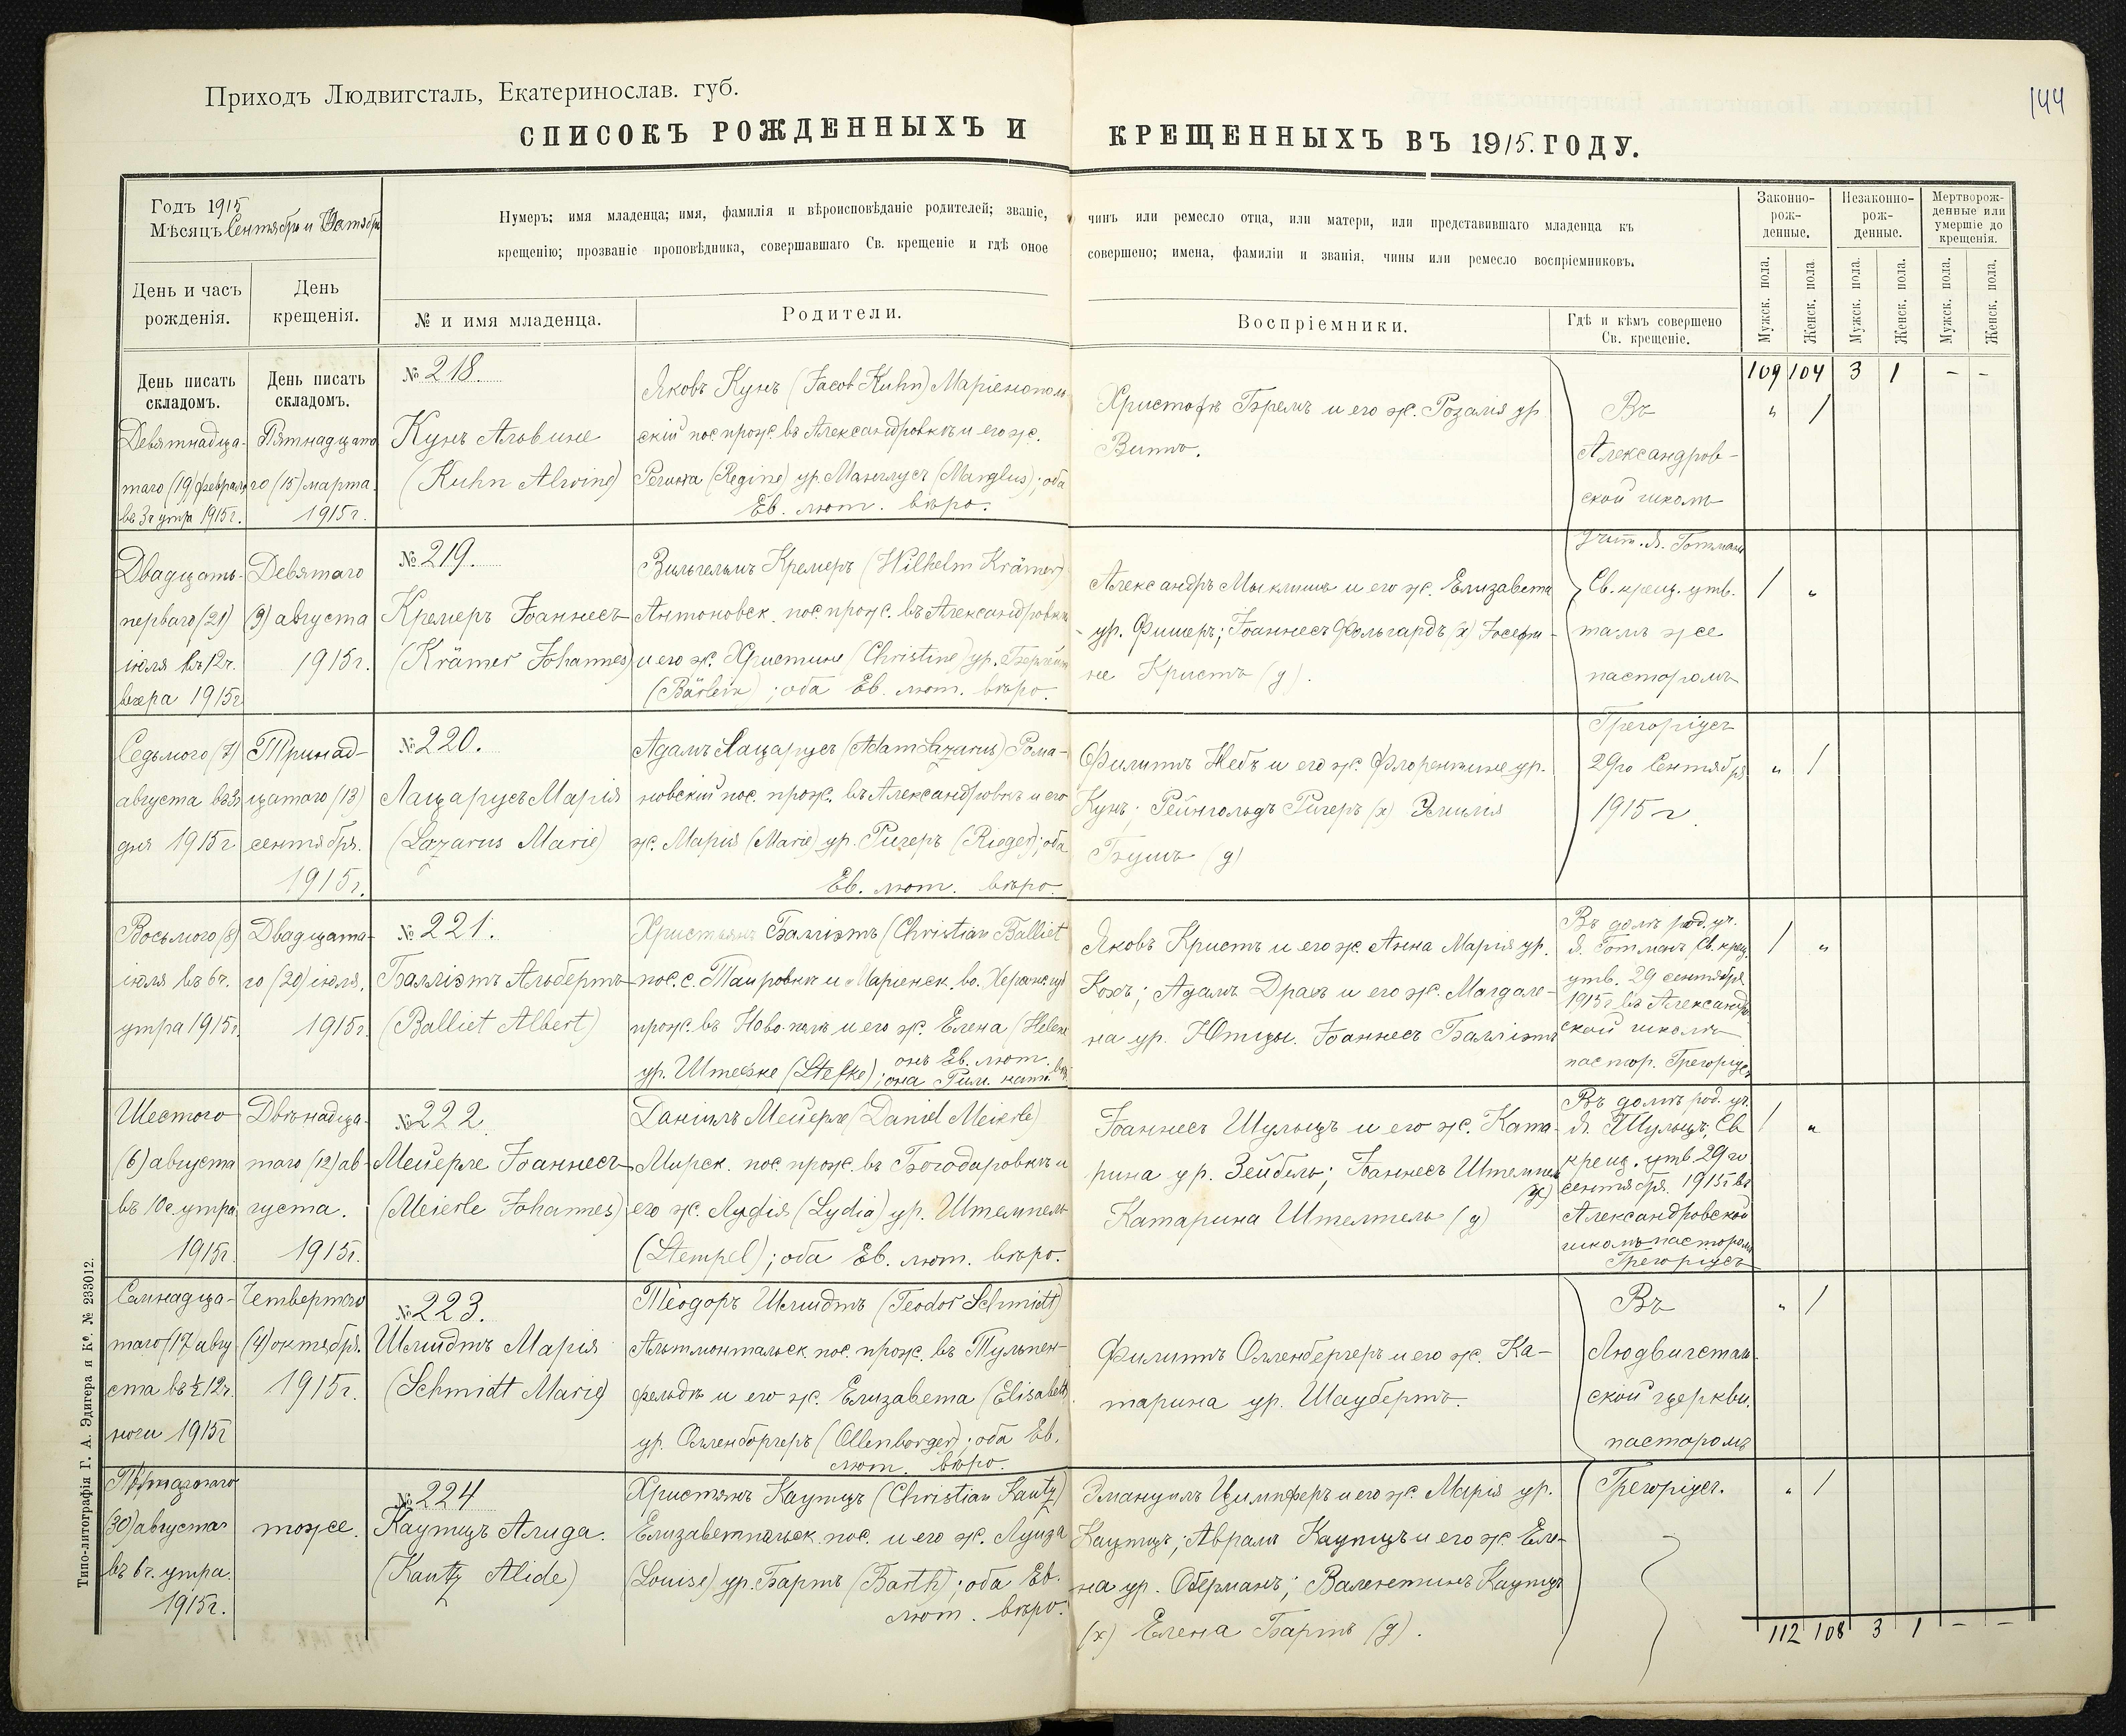 Приходъ Людвигсталь, Екатеринослав. губ.
144
СПИСОКЪ РОЖДЕННЫХЪ И КРЕЩЕННЫХЪ ВЪ 1915. ГОДУ.
Годъ 1915
Мѣсяцъ Сентябрь и Октябрь
Нумеръ; имя младенца; имя, фамилія и вѣроисповѣданіе родителей; званіе, чинъ или ремесло отца, или матери, или представившаго младенца къ
крещенію; прозваніе проповѣдника, совершавшаго Св. крещеніе и гдѣ оное совершено; имена, фамиліи и званія, чины или ремесло воспріемниковъ.
Законно-
рож-
денные.
Незаконно-
рож-
денные.
Мертворож-
денные или
умершіе до
крещенія.
День и часъ
рожденія.
День
крещенія.
№ и имя младенца.
Родители.
Воспріемники.
Гдѣ и кѣмъ совершено
Св. крещеніе.
Мужск. пола.
Женск. пола
Мужск. пола
Женск. пола.
Мужск. пола.
Женск. пола.
109 104 3 1 - -
День писать
складомъ.
День писать
складомъ.
Девятнадца-
таго (19) февраля
въ 3ч утра 1915г.
Пятнадцата
го (15) марта
1915г.
№ 218.
Кунъ Альвине
(Kuhn Alwine)
Яковъ Кунъ (Jacob Kuhn) Маріенополь
скій пос. прож. въ Александровкѣ и его ж.
Регина (Regine) ур. Манглусъ (Manglus); оба
Ев. лют. вѣро.
Христофъ Бремъ и его ж. Розалія ур
Витъ.
Въ
Александров-
ской школѣ
учит. Я. Готманъ
" 1
Двадцать-
перваго (21)
іюля въ 12ч.
вечера 1915г
Девятаго
(9) августа
1915г.
№ 219.
Кремеръ Іоаннесъ
(Krämer Johannes)
Вильгельмъ Кремеръ (Wilhelm Krämer)
Антоновск. пос. прож. въ Александровкѣ
и его ж. Христине (Christine) ур.
; оба Ев. лют. вѣро.
Александръ и его ж. Елизавета
ур. Фишеръ; Іоаннесъ Фольгардъ (х) Іосефи-
не Кристъ (д).
Св. крещ. утв.
тамъ же
пасторомъ
Грегоріусъ
29го Сентября
1915г.
1 "
Седьмого (7)
августа
дня 1915г
Тринад-
цатаго (13)
сентября.
1915г.
№ 220.
Лацарусъ Марія
(Lazarus Marie)
Адамъ Лацарусъ (Adam Lazarus) Рома-
новскій пос. прож. въ Александровкѣ и его
ж. Марія (Marie) ур. Ригеръ (Rieger); оба
Ев. лют. вѣро.
Филиппъ Небъ и его ж. Флорентине ур.
Кунъ; Рейнгольдъ Ригеръ (х) Эмилія
Бушъ (д)
" 1
Восьмого (8)
іюля въ 6ч.
утра 1915г.
Двадцата-
го (20) іюля.
1915г.
№ 221.
Балліэтъ Альбертъ
(Balliet Albert)
Христьянъ Балліэтъ (Christian Balliet
пос. с. Таировки и Маріенск. во. Херсонс. губ
прож. въ Ново- и его ж. Елена (Helene
ур. Штефке (Stefke); онъ Ев. лют.
она Рим. кат. вѣр.
Яковъ Кристъ и его ж. Анна Марія ур.
Кохъ; Адамъ Драсъ и его ж. Магдале-
на ур. Ютцы. Іоаннесъ Балліэтъ
Въ домѣ род. уч.
Я. Готманъ, Св. крещ
утв. 29 сентября
1915г въ Александр
ской школѣ
пастор. Грегоріусъ
1 "
Шестого
(6) августа
въ 10ч. утра
1915г.
Двѣнадца-
таго (12) ав-
густа.
1915г.
№ 222
Мейерле Іоаннесъ
(Meierle Johannes)
Даніилъ Мейерле (Daniel Meierle)
Мирск. пос. прож. въ Богодаровкѣ и
его ж. Лидія (Lydia) ур. Штемпель
(Stempel); оба Ев. лют. вѣро.
Іоаннесъ Шульцъ и его ж. Ката-
рина ур. Зейбель; Іоаннесъ Штемпель
(х)
Катарина Штемпель (д)
Въ домѣ род. уч.
Я. Шульцъ, Св
крещ. утв. 29го
сентября 1915г въ
Александровской
школѣ пасторомъ
Грегоріусъ
1 "
Семнадца-
таго (17) авгу
ста въ ½ 12ч.
ночи 1915г
Четвертаго
(4) октября.
1915г.
№ 223.
Шмидтъ Марія
(Schmidt Marie)
Теодоръ Шмидтъ (Teodor Schmidt)
Альтмонтальск. пос. прож. въ Тульпен-
фельдѣ и его ж. Елизавета (Elisabeth
ур. Олленбергеръ (Ollenberger); оба Ев.
лют. вѣро.
Филиппъ Олленбергеръ и его ж. Ка-
тарина ур. Шаубертъ.
Въ
Людвигсталь-
ской церкви,
пасторомъ
Грегоріусъ.
" 1
(30) августа
въ 6ч. утра.
1915г.
тоже.
№ 224
Каутцъ Алида.
(Kautz Alide)
Христьянъ Каутцъ (Christian Kautz)
Елизаветпольск. пос. и его ж. Луиза
(Louise) ур. Бартъ (Barth); оба Ев.
лют. вѣро.
Эмануилъ Цимпферъ и его ж. Марія ур.
Каутцъ; Абрамъ Каутцъ и его ж. Еле-
на ур. Оберманъ; Валентинъ Каутцъ
(х) Елена Бартъ (д).
" 1
112 108 3 1 - -
Типо-литографія Г. А. Эдигера и Ко. № 233012.